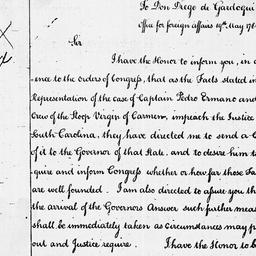 To Don Diego de Gardoqui
Office for foreign Affairs 19th May 178
Sir
I have the Honor to inform you, in o
ence to the orders of Congress, that as the Facts stated in
Representation of the case of Captain Pedro Ermano and
Crew of the Sloop Virgin of Carmen, impeach the Justice
outh Carolina, they have directed me to send a C
of it to the Governor of that State, and to desire him t
quire and inform Congress whether or how far those Fa
are well founded. I am also directed to assure you, th
the arrival of the Governors Answer such further meas
shall be immediately taken as Circumstances may p
out and Justice require. I have the Honor to b